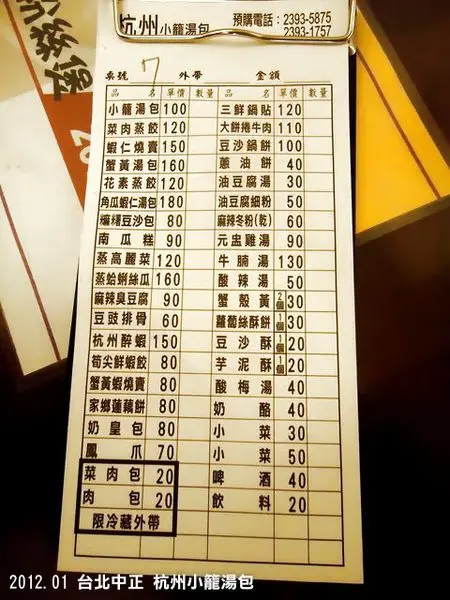 杭州小籠湯包 預購電話：2393-5875
2393-1757
桌號 7 外帶 金額
品名 單價 數量 品名 單價 數量
小籠湯包 100 三鮮鍋貼 120
菜肉蒸餃 120 大餅捲牛肉 110
蝦仁燒賣 150 豆沙鍋餅 100
蟹黃湯包 160 蔥油餅 40
花素蒸餃 120 油豆腐湯 30
角瓜蝦仁湯包 180 油豆腐細粉 50
豆沙包 80 麻辣冬粉(乾) 60
南瓜糕 90 元盅雞湯 90
蒸高麗菜 120 牛腩湯 130
蒸蛤蜊絲瓜 160 酸辣湯 50
麻辣臭豆腐 90 蟹殼黃 2個 30
豆豉排骨 60 蘿蔔絲酥餅 1個 30
杭州醉蝦 150 豆沙酥 1個 20
筍尖鮮蝦餃 80 芋泥酥 1個 20
蟹黃蝦燒賣 80 酸梅湯 40
家鄉蓮藕餅 80 奶酪 40
奶皇包 80 小菜 30
鳳爪 70 小菜 50
菜肉包 20 啤酒 40
肉包 20 飲料 20
限冷藏外帶
2012.01 台北中正 杭州小籠湯包